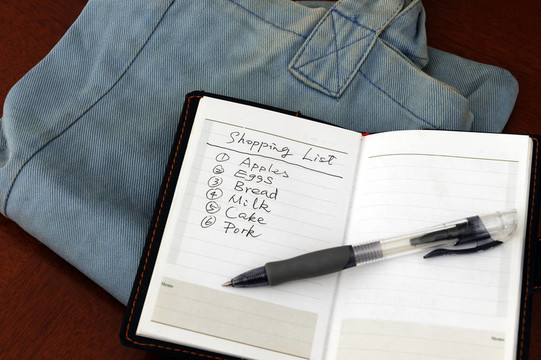 Shopping List
① Apples
② Eggs
③ Bread
④ Milk
⑤ Cake
⑥ Pork
Memo
Memo